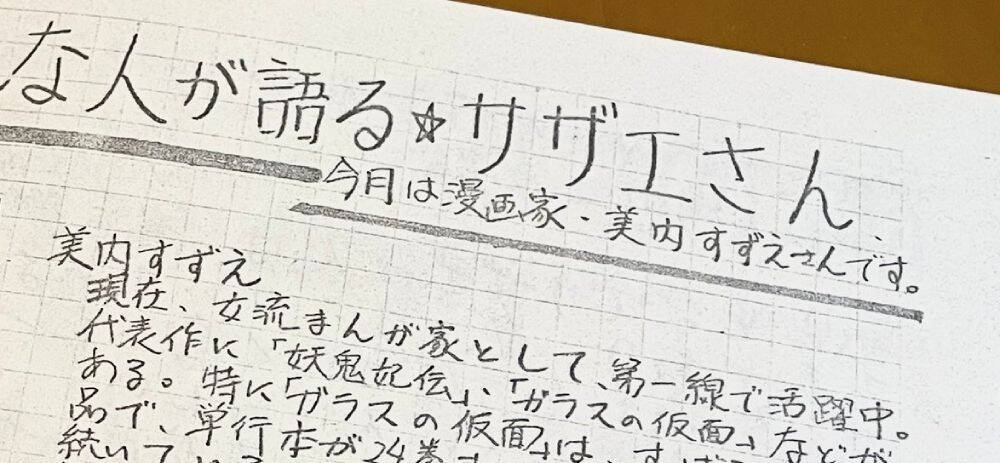 な人が語る☆サザエさん
今月は漫画家・美内すずえさんです。
美内すずえ
現在、女流まんが家として、第一線で活躍中。
代表作に「妖鬼妃伝」、「ガラスの仮面」などが
ある。特に「ガラスの仮面」は、
品で、単行本が24巻
続いて